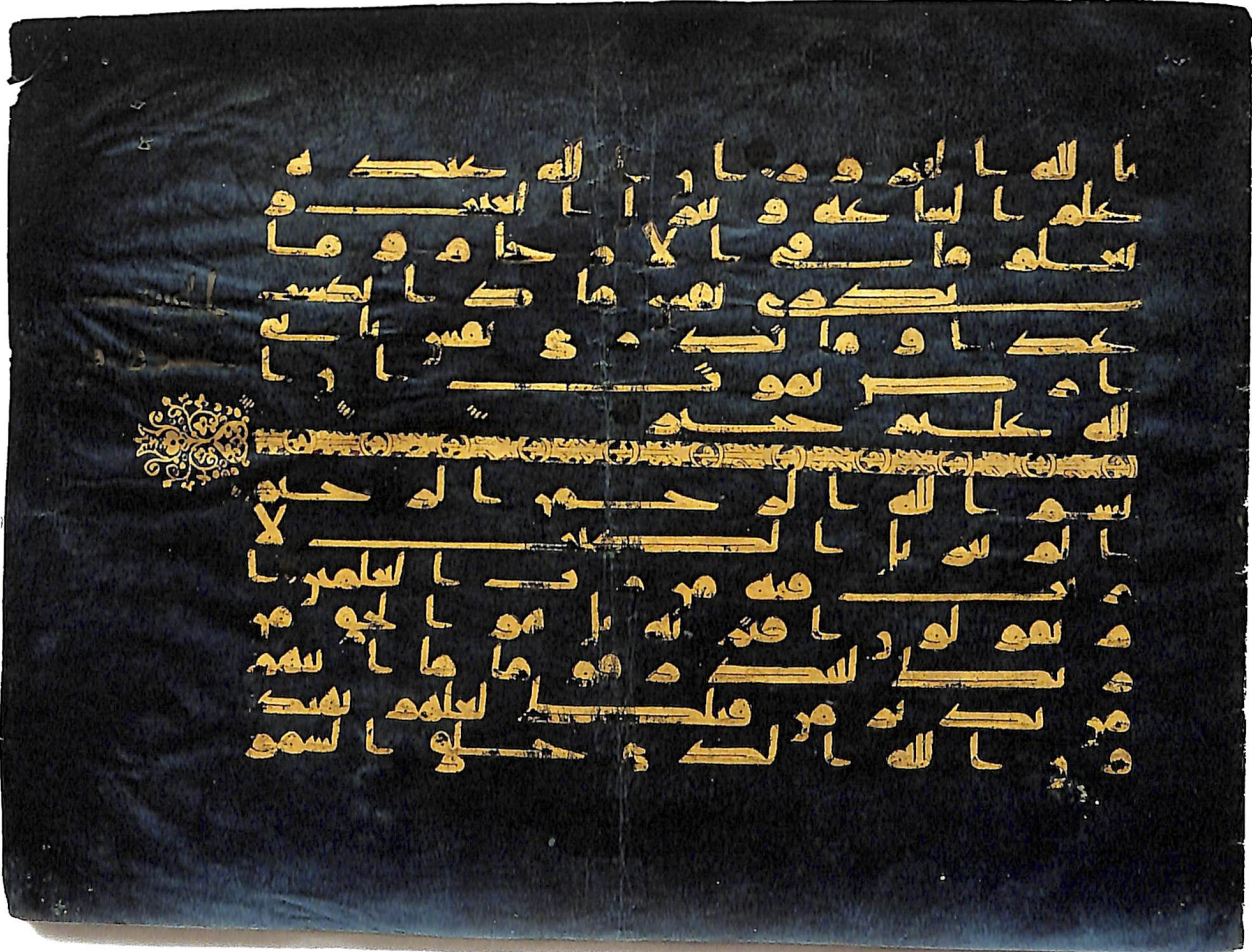 بالله الغرور ان الله عنده
علم الساعة وينزل الغيث و
يعلم ما في الارحام وما
تدري نفس ماذا تكسب
غدا وما تدري نفس باي
ارض تموت ان ا
لله عليم خبير
بسم الله الرحمن الرحيم
الم تنزيل الكتب لا
ريب فيه من رب العلمين ا
م يقولون افتريه بل هو الحق من
ربك لتنذر قوما ما اتيهم
من نذير من قبلك لعلهم يهتد
ون الله الذي خلق السمو